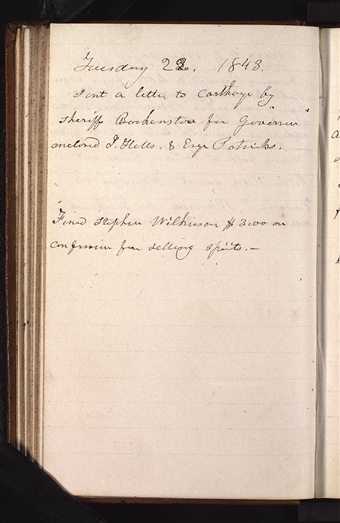 Tuesday 22. 1843.
Sent a letter to Carthage by
Sheriff Backenstow for Governor
and J. Hells. & Esqr Patricks.
Fined Stephen Wilkinson $ 3.00 on
confession for selling spirits.—